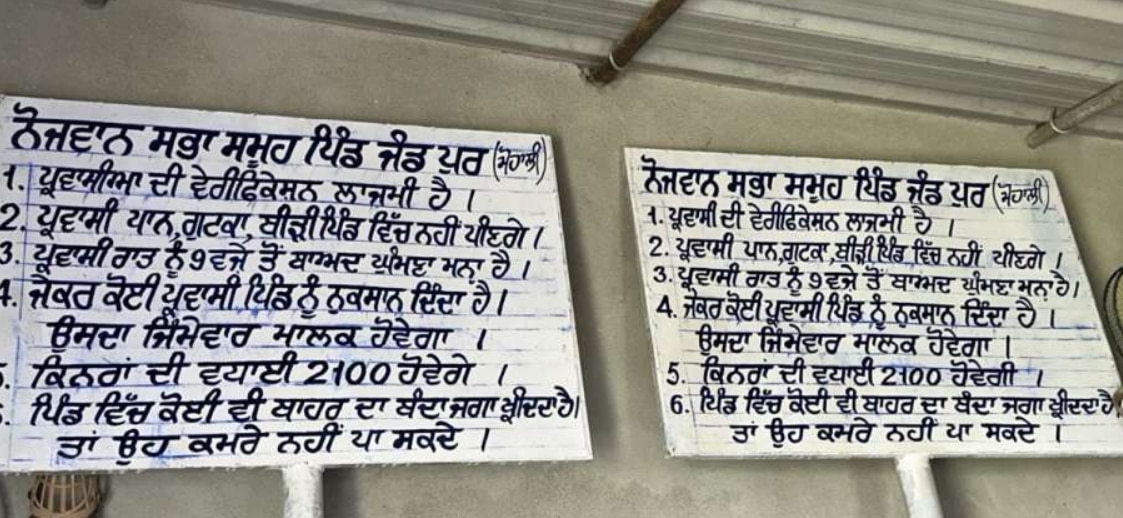 ਨੌਜਵਾਨ ਸਭਾ ਸਮੂਹ ਪਿੰਡ ਜੰਡ ਪੁਰ (ਮੋਹਾਲੀ)
1. ਪ੍ਰਵਾਸੀਆ ਦੀ ਵੇਰੀਫਿਕੇਸ਼ਨ ਲਾਜਮੀ ਹੈ ।
2. ਪ੍ਰਵਾਸੀ ਪਾਨ,ਗੁਟਕਾ, ਬੀੜੀ ਪਿੰਡ ਵਿੱਚ ਨਹੀਂ ਪੀਣਗੇ ।
3. ਪ੍ਰਵਾਸੀ ਰਾਤ ਨੂੰ 9 ਵਜੇ ਤੋਂ ਬਾਅਦ ਘੁੰਮਣਾ ਮਨਾ ਹੈ ।
4. ਜੇਕਰ ਕੋਈ ਪ੍ਰਵਾਸੀ ਪਿੰਡ ਨੂੰ ਨੁਕਸਾਨ ਦਿੰਦਾ ਹੈ।
ਉਸਦਾ ਜਿੰਮੇਵਾਰ ਮਾਲਕ ਹੋਵੇਗਾ ।
. ਕਿਨਰਾਂ ਦੀ ਵਧਾਈ 2100 ਹੋਵੇਗੇ ।
. ਪਿੰਡ ਵਿੱਚ ਕੋਈ ਵੀ ਬਾਹਰ ਦਾ ਬੰਦਾ ਜਗਾ ਖ੍ਰੀਦਦਾ ਹੈ।
ਤਾਂ ਉਹ ਕਮਰੇ ਨਹੀਂ ਪਾ ਸਕਦੇ ।
ਨੌਜਵਾਨ ਸਭਾ ਸਮੂਹ ਪਿੰਡ ਜੰਡ ਪੁਰ (ਮੋਹਾਲੀ)
1. ਪ੍ਰਵਾਸੀ ਦੀ ਵੇਰੀਫਿਕੇਸਨ ਲਾਜਮੀ ਹੈ ।
2. ਪ੍ਰਵਾਸੀ ਪਾਨ,ਗੁਟਕਾ ,ਬੀੜੀ ਪਿੰਡ ਵਿੱਚ ਨਹੀਂ ਪੀਣਗੇ ।
3. ਪ੍ਰਵਾਸੀ ਰਾਤ ਨੂੰ 9 ਵਜੇ ਤੋਂ ਬਾਅਦ ਘੁੰਮਣਾ ਮਨਾ ਹੈ।
4. ਜੇਕਰ ਕੋਈ ਪ੍ਰਵਾਸੀ ਪਿੰਡ ਨੂੰ ਨੁਕਸਾਨ ਦਿੰਦਾ ਹੈ ।
ਉਸਦਾ ਜਿੰਮੇਵਾਰ ਮਾਲਕ ਹੋਵੇਗਾ ।
5. ਕਿਨਰਾਂ ਦੀ ਵਧਾਈ 2100 ਹੋਵੇਗੀ ।
6. ਪਿੰਡ ਵਿੱਚ ਕੋਈ ਵੀ ਬਾਹਰ ਦਾ ਬੰਦਾ ਜਗਾ ਖ੍ਰੀਦਦਾ ਹੈ
ਤਾਂ ਉਹ ਕਮਰੇ ਨਹੀਂ ਪਾ ਸਕਦੇ ।